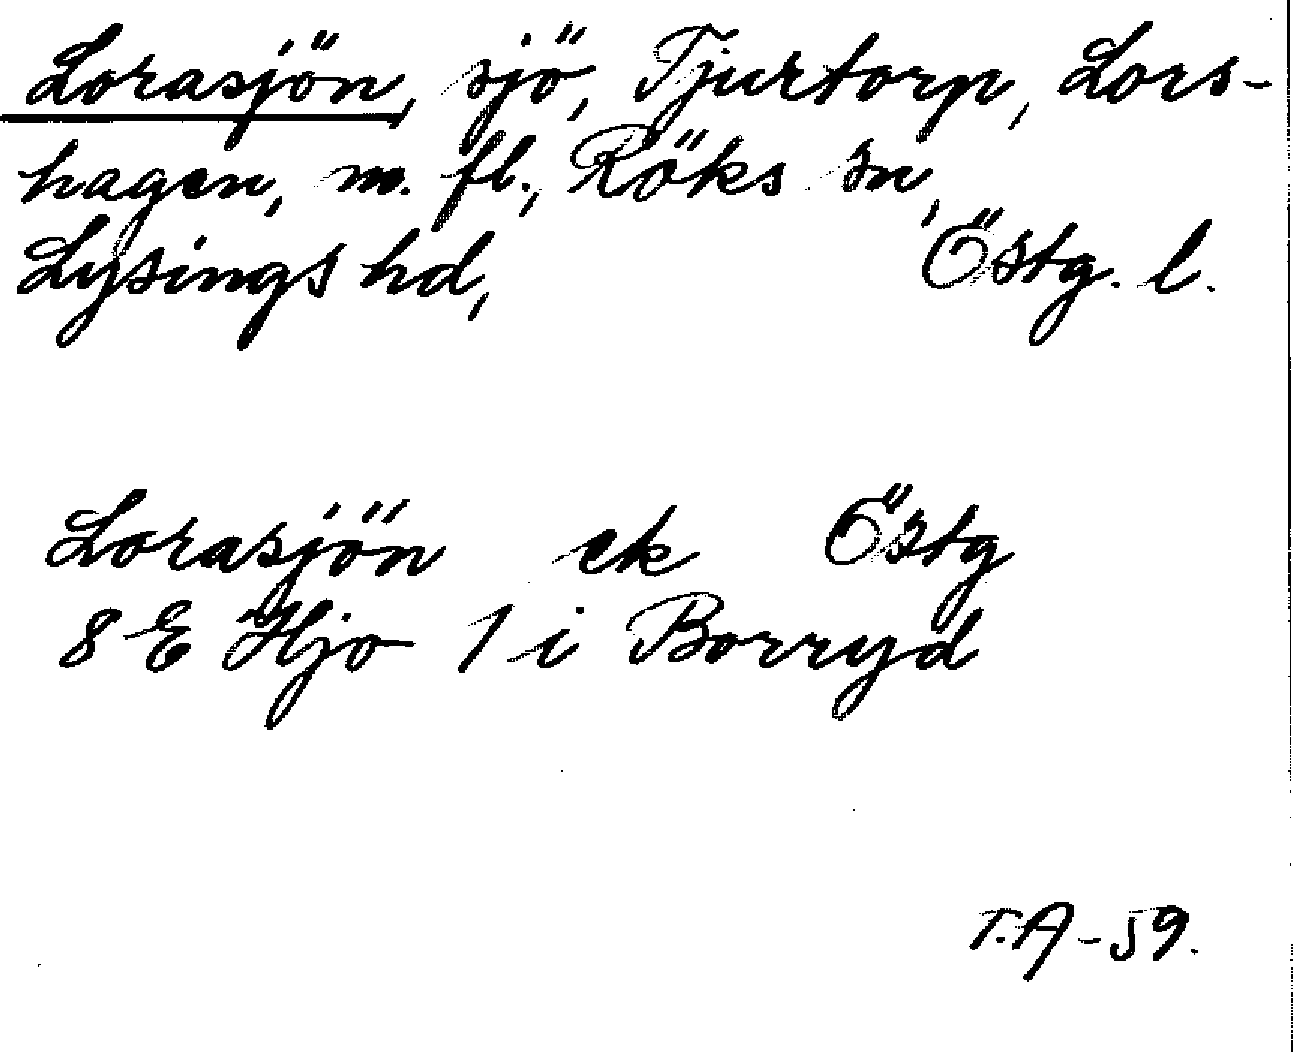 Lorasjön, sjö, Tjurtorp, Lors-
hagen, m. fl., Röks sn,
Lysings hd, Östg. l.
Lorasjön ek Östg
8 E Hjo 1 i Borryd
T.A-59.